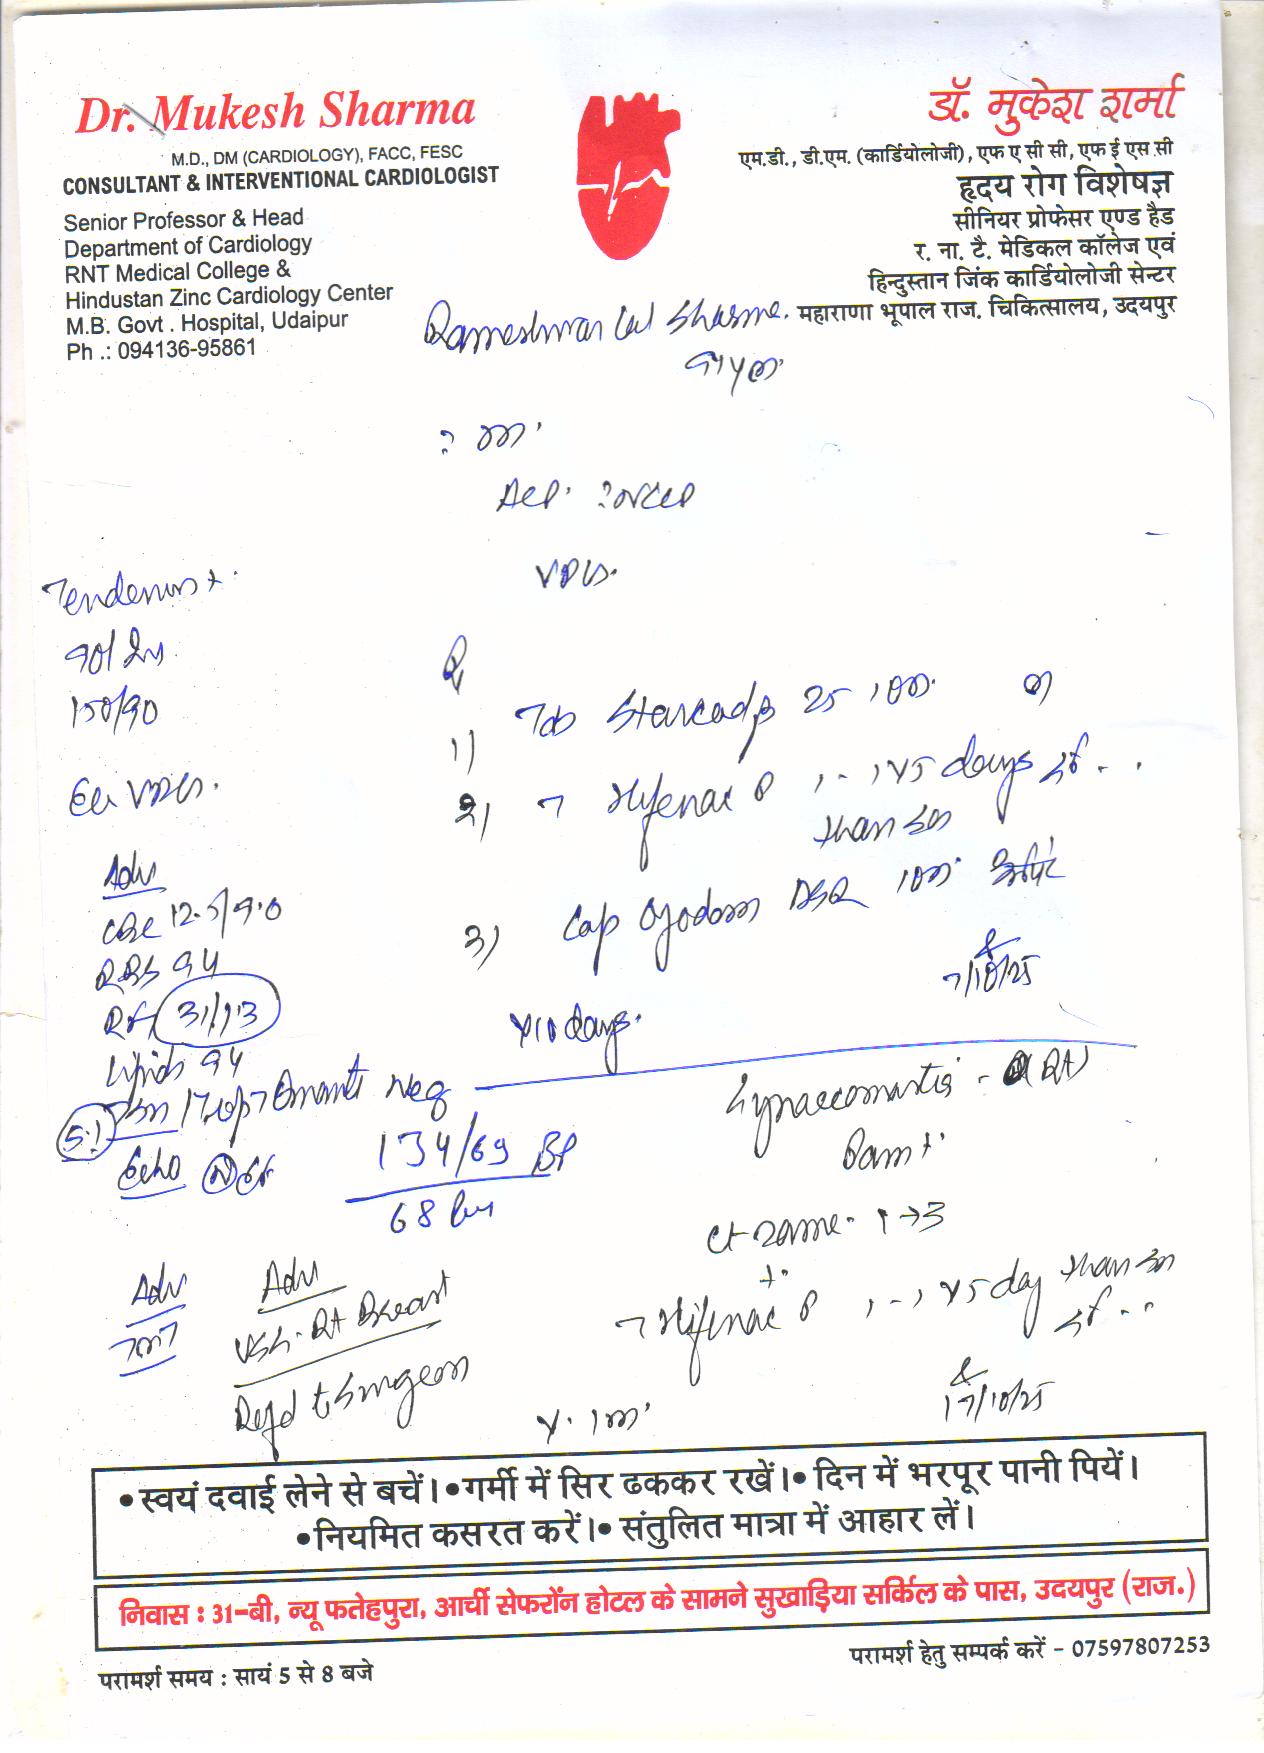 Dr. Mukesh Sharma
M.D., DM (CARDIOLOGY), FACC, FESC
CONSULTANT & INTERVENTIONAL CARDIOLOGIST
Senior Professor & Head
Department of Cardiology
RNT Medical College &
Hindustan Zinc Cardiology Center
M.B. Govt . Hospital, Udaipur
Ph .: 094136-95861
डॉ. मुकेश शर्मा
एम.डी., डी.एम. (कार्डियोलोजी), एफ ए सी सी, एफ ई एस सी
हृदय रोग विशेषज्ञ
सीनियर प्रोफेसर एण्ड हैड
र. ना. टै. मेडिकल कॉलेज एवं
हिन्दुस्तान जिंक कार्डियोलोजी सेन्टर
महाराणा भूपाल राज. चिकित्सालय, उदयपुर
Rameshwar Lal Sharma
VPCs.
150/90
Adv
CBC 12.5/9.0
RBS 94
31/1.3
Lipids 94
Neg
Echo
1)
Tab 25
2) Hifenac P x 5 days
than
3) Cap DSR
7/10/25
x 10 days.
134/69 BP
68
Gynaecomastia - (Rt)
Pain +
Ct same. 1→3
+
T Hifenac P x 5 day than
17/10/25
Adv
TMT
Adv
USG - Rt Breast
Refd to Surgeon
•स्वयं दवाई लेने से बचें।•गर्मी में सिर ढककर रखें।• दिन में भरपूर पानी पियें।
•नियमित कसरत करें।• संतुलित मात्रा में आहार लें।
निवास : 31-बी, न्यू फतेहपुरा, आर्ची सेफरॉन होटल के सामने सुखाड़िया सर्किल के पास, उदयपुर (राज.)
परामर्श समय : सायं 5 से 8 बजे
परामर्श हेतु सम्पर्क करें - 07597807253